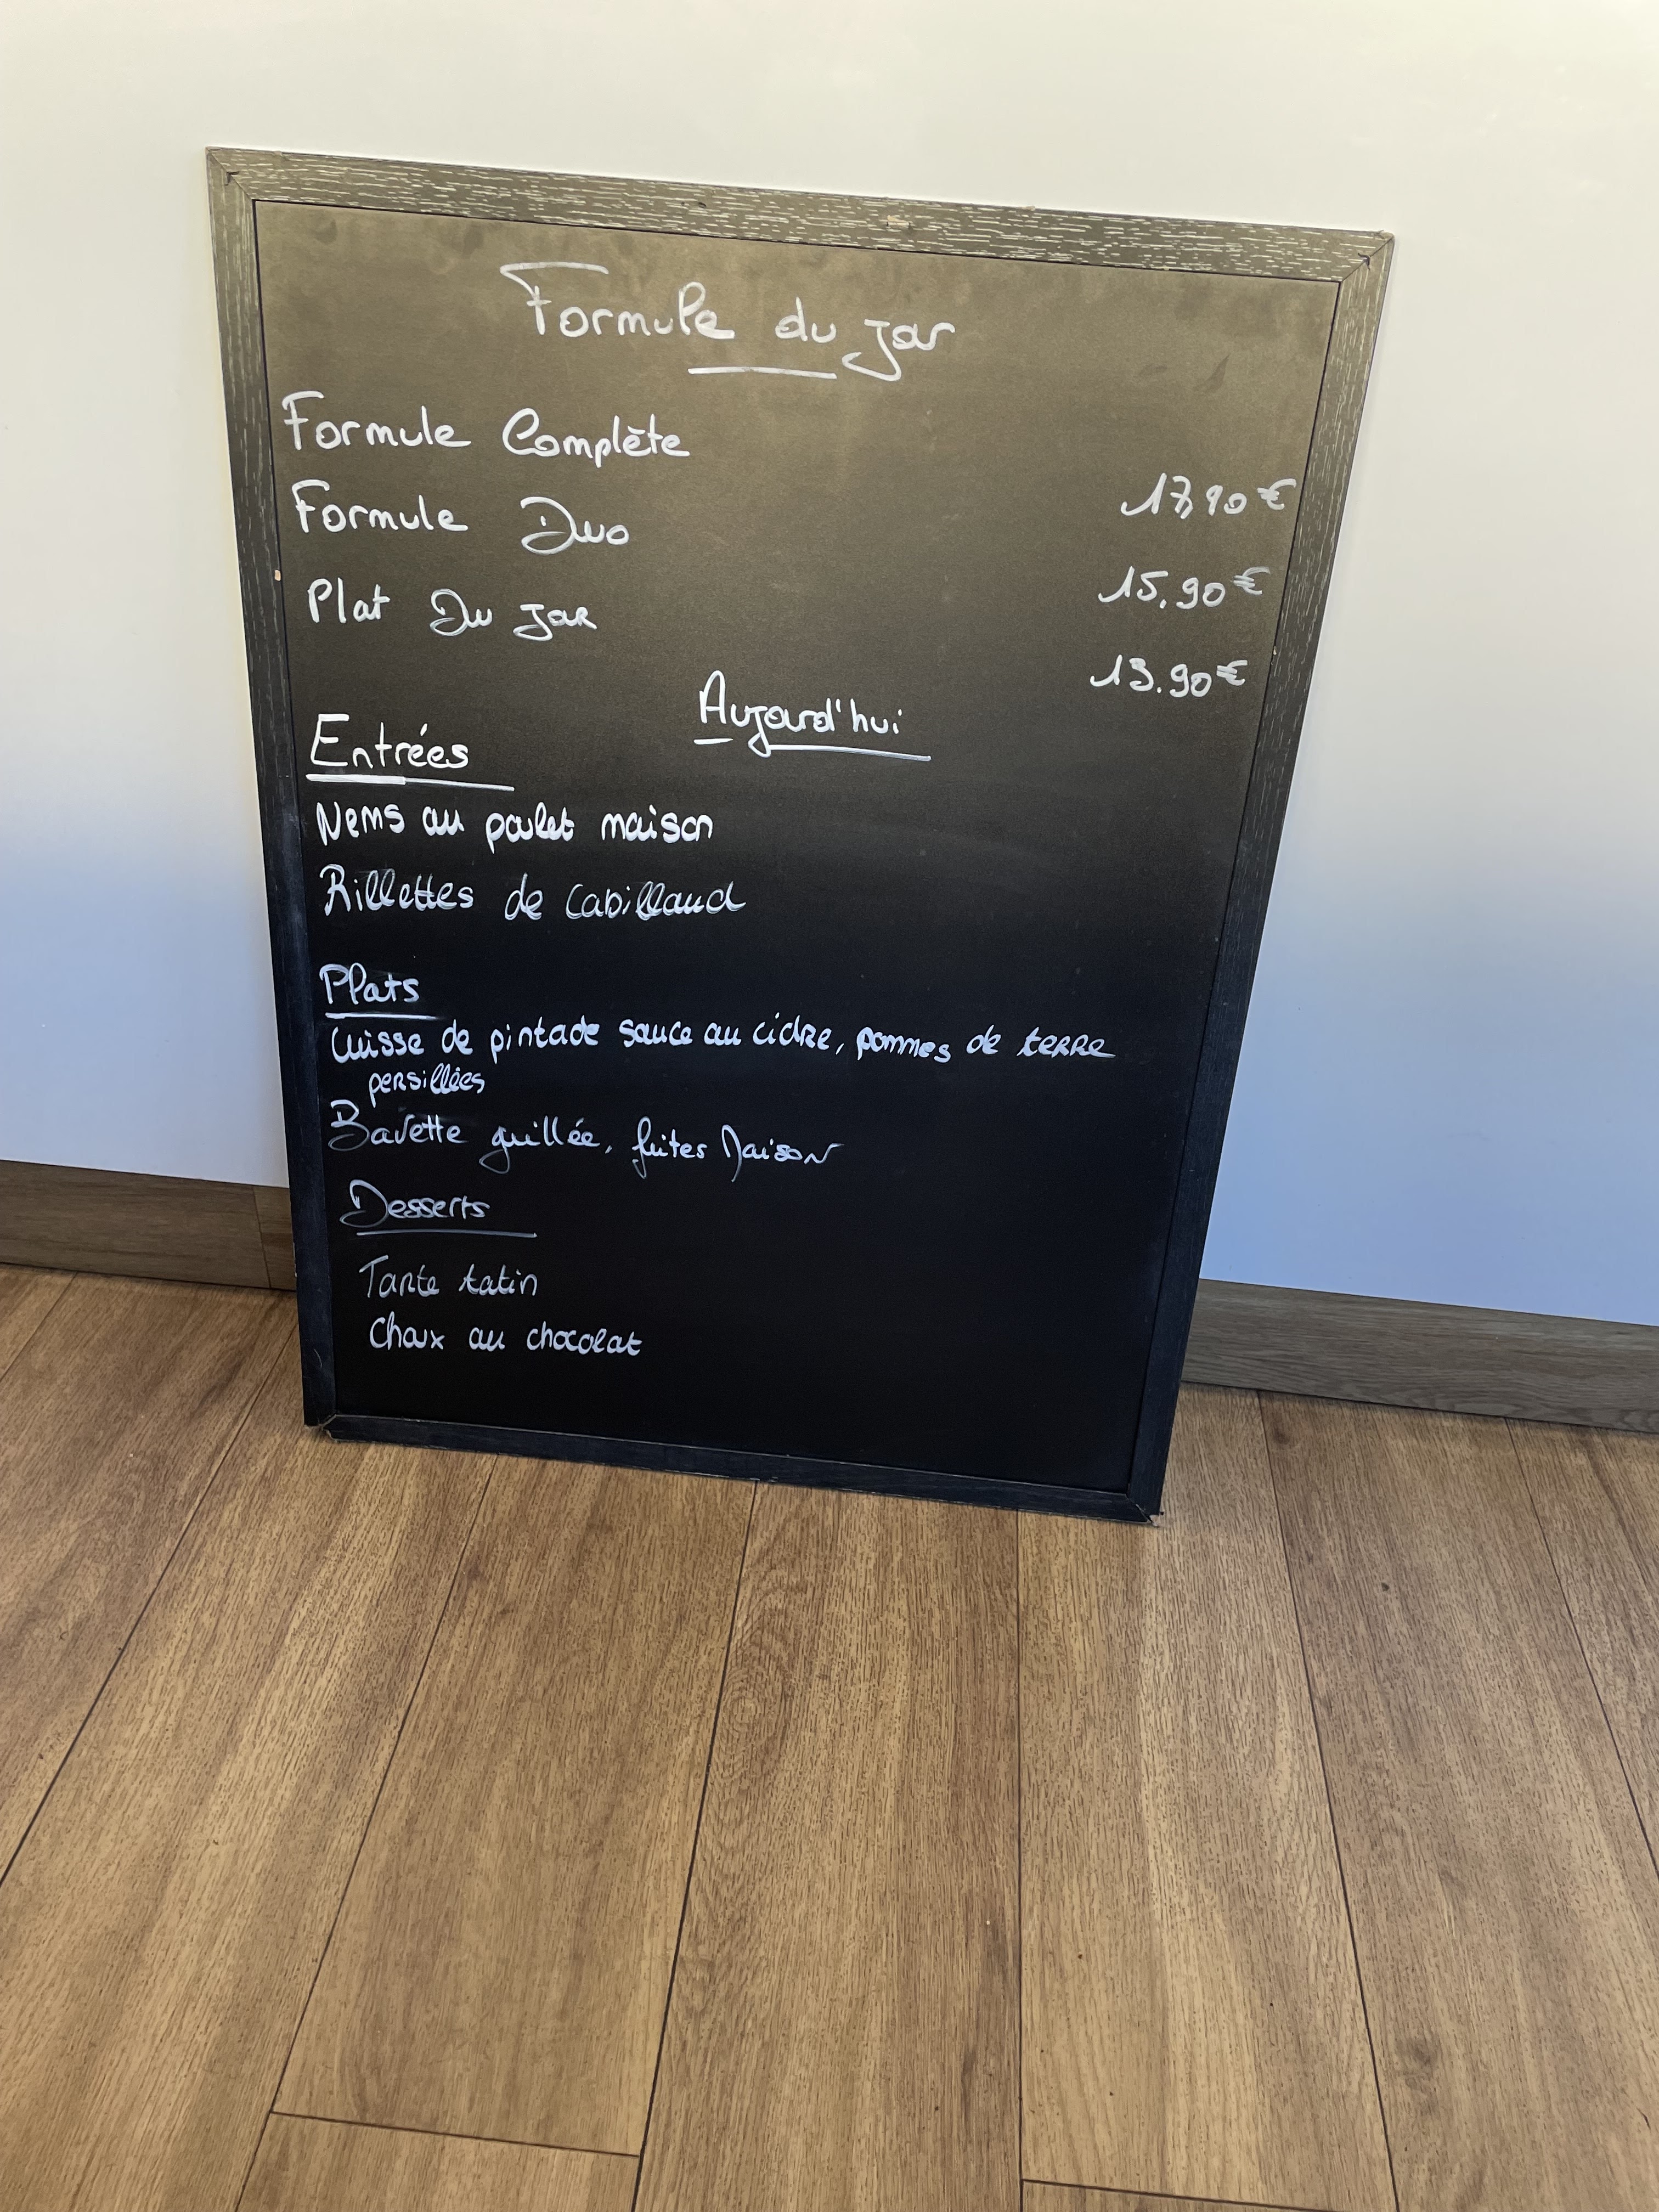 Formule du jour
Formule Complète 17,90€
Formule Duo 15.90€
Plat Du jour 13.90€
Aujourd'hui
Entrées
Nems au poulet maison
Rillettes de cabillaud
Plats
Cuisse de pintade sauce au cidre, pommes de terre
persillées
Bavette grillée, frites Maison
Desserts
Tarte tatin
Choux au chocolat